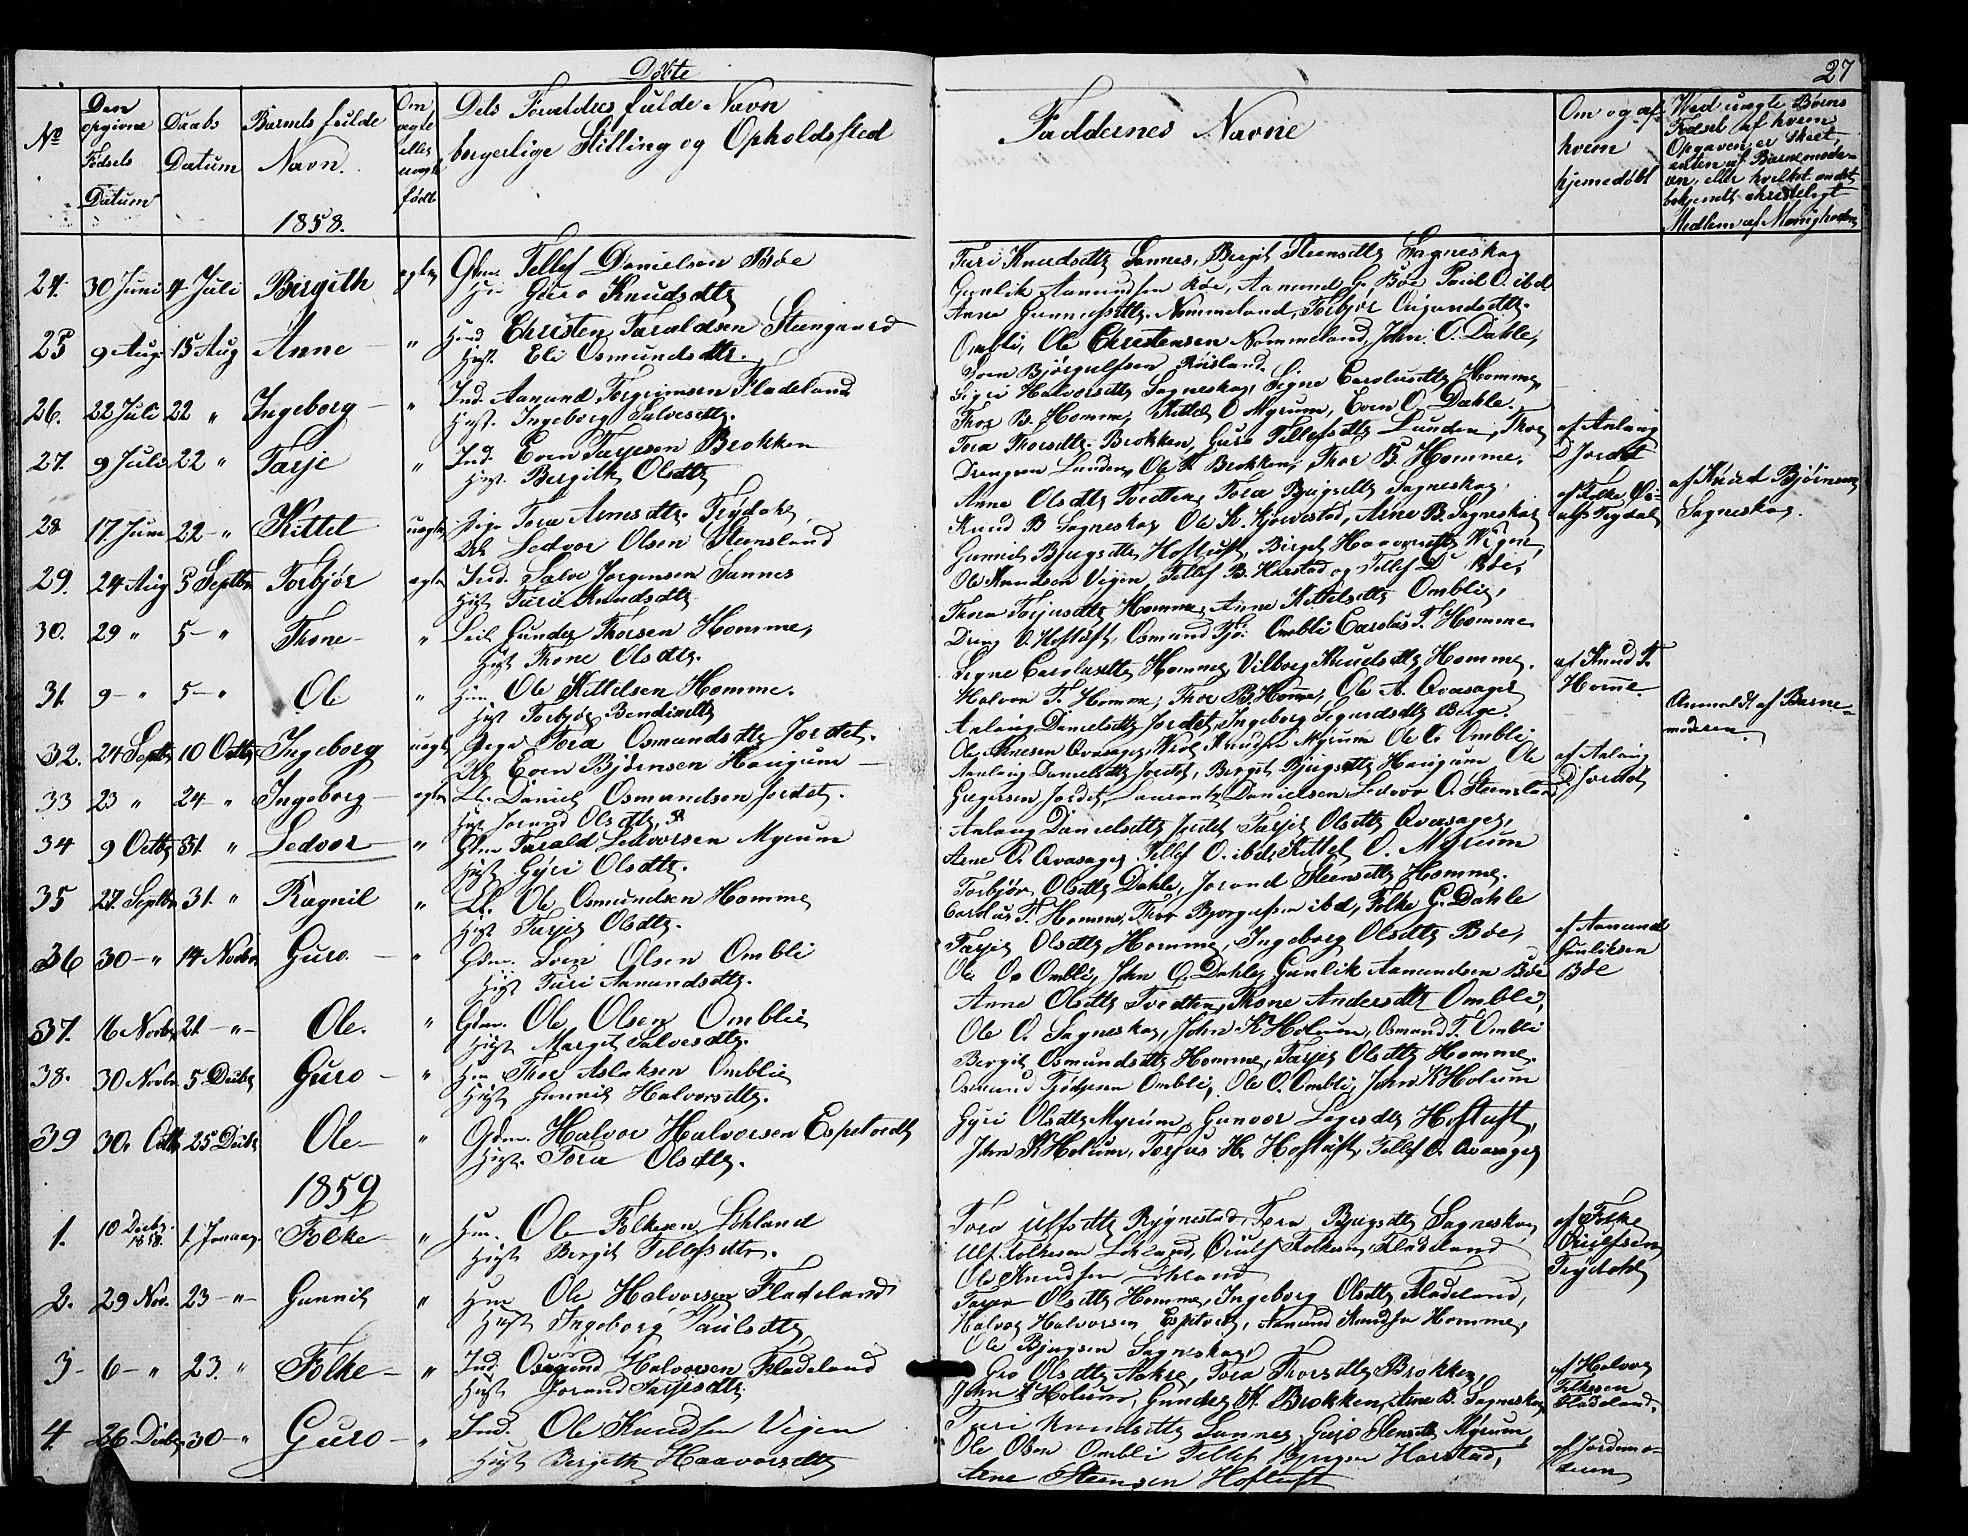 Døbte
27
No
Den opgivne Fødsels Datum
Daabs Datum
Barnets fulde Navn.
Om ægte eller uægte født
Dets Forældres fulde Navn
borgerlige Stilling og Opholdssted
Faddernes Navne
Om og af hvem hjemedøbt
Ved uægte Børns Fødsel af hvem Opgaven er skeet, enten af Barnemoderen, eller hvilket andet bekjendt christeligt Medlem af Menigheden
1858.
24. 30 Juni 4 Juli Birgith ægte Gdm. Tellef Danielsen Bøe
Guro Knudsdtr
Turi Knudsdtr Sannes, Bergit Steensdtr Sagneskog
Gunlik Aamundsen Bøe, Aamund G. Bøe Paul O. ibd
25 9 Aug. 15 Aug Anne " Christen Taraldsen Steengaard
Hust. Eli Osmundsdtr.
Anne Gunnufsdtr. Nommeland, Torbjør
Ombli, Ole Christensen Nommeland, John O. Dahle,
Bjørgulfsen
26. 22 Juli 22 " Ingeborg " Ind. Aamund Torgrimsen Fladeland
Hust. Ingeborg Salvesdtr.
Sigri Halvorsdtr Sagneskog, Signe Carolusdtr Homme,
Thor B. Homme, Kittel O Myrum, Even O. Dahle.
27. 9 Juli 22 " Tarje " Ind. Even Tarjesen Brokken
Hust. Bergith Olsdtr
Tora Thorsdtr. Brokken, Guro Tellefsdtr Lunden, Thor
Drengsen Lunden, Ole K Brokken, Thor B. Homme.
af Anlaug D Jordet
28 17 Juni 22 - " Kittel uægte Pige Tora Arnesdtr. Frydahl
Ledvor Olsen Steensland
Anne Olsdtr Tvedten, Tora Bjugsdtr Sagneskog,
Knud B Sagneskog Ole K. Kjørvestad, Arne B. Sagneskog
af Folke
af Knud Bjørnsen
Sagneskog.
29. 24 Aug 5 Septbr Torbjør ægte Ind. Salve Jorgensen Sannes
Hust Turi Knudsdtr
Gunnil Bjugsdtr Hoftuft, Birgit Haavorsdtr Vigen,
Ole Knudsen Vigen, Tellef B. Harstad og Tellef D Bøe,
30. 29 " 5 - " Thone " Gunder Thorsen Homme,
Hust Thone Olsdtr.
Thora Torjusdtr Homme, Anne Kittelsdtr Ombli,
Dreng O. Hoftuft, Osmund Tj. Ombli Carolus T. Homme
31. 9 - " 5 - " Ole " Ole Kittelsen Homme.
Hust Torbjør Bendixdtr
Signe Carolusdtr Homme, Vilborg Knudsdtr Homme.
Halvor T. Homme, Thor B. Homme, Ole A. Qvasager
af Knud
Homme
32. 24 Septbr 10 Octbr Ingeborg uægte Pige Tora Osmundsdtr Jordet.
Even Bjørnsen Haugum
Anlaug Danielsdtr Jordet, Ingeborg Sigurdsdtr Berge.
Ole Arnesen Qvasager, Knudsen Myrum Ole O. Ombli
Anmeldt af Barne-
moderen.
33 23 " 24 - " Ingeborg ægte Daniel Osmundsen Jordet.
Hust Jorand Olsdtr
Anlaug Danielsdtr Jordet, Bergit Bjugsdtr Haugum Ole
Gregersen Jordet, Laurantz Danielsen, Ledvor O. Steensland
af Anlaug D Jordet
34 9 Octbr 31. " Ledvor " Gdm Tarald Ledvorsen Myrum
Hust Gyri Olsdtr.
Anlaug Danielsdtr Jordet Tarjer Olsdtr Qvasager,
Arne O. Qvasager, Tellef O. ibd, Kittel O. Myrum
35 27. Septbr 31. " Ragnil " Ole Osmundsen Homme
Hust Tarjer Olsdtr.
Torbjør Olsdtr Dahle, Jorand Steensdtr Homme.
Carolus T. Homme, Thor Bjorgufsen ibd, Folke G. Dahle
36 30 - " 14 Novbr Guro. - " Gdm. Svein Olsen Ombli
Hust Turi Aamundsdtr.
Tarjer Olsdtr Homme, Ingeborg Olsdtr Bøe,
Ole O Ombli, John O. Dahle, Gunlik Aamundsen Bøe
af Aamund
Gunliksen
Bøe
37. 16 Novbr 21 - " - Ole. " Gdm. Ole Olsen Ombli
Hust Margit Salvesdtr.
Anne Olsdtr Tvedten, Thone Andersdtr Ombli,
Ole O. Sagneskog, John K Holum, Osmund T. Ombli
38. 30 Novbr 5. Decbr Guro - " Thor Aslaksen Ombli
Hust Gunnil Halvorsdtr.
Bergit Osmundsdtr Homme, Tarjer Olsdtr Homme.
Osmund Ombli, Ole O. Ombli, John K Holum
39 30. Octbr 25 Decbr Ole - " Gdm. Halvor Halvorsen Espetvedt
Hust. Tora Olsdtr.
Gyri Olsdtr Myrum, Gunvor Hoftuft,
John K Holum, Torjus H. Hoftuft, Tellef O. Qvasager
1859
1. 10 Decbr. 1858. 1. Januar Folke - " Ole Folkesen Lohland
Hust Bergit Tellefsdtr.
Tora Ulfsdtr Rygnestad, Tora Bjugsdtr Sagneskog
Ulf Folkesen Lohland, Folkesen Fladeland
Ole Knudsen Lohland
af Folke
Frydahl
2. 29 Nov. 23 - " - Gunnil " Ole Halvorsen Fladeland
Hust Ingeborg Paulsdtr
Olsdtr Homme, Ingeborg Olsdtr Fladeland,
Halvor Halvorsen Espetvedt, Aamund Knudsen Homme,
Ole Bjugsen Sagneskog,
3 - 6 - " 23. " Folke - " Ind. Osmund Halvorsen Fladeland
Hust Jorand Tarjesdtr.
Gro Olsdtr Aakre, Tora Thorsdtr Brokken,
John K Holum, Gunder K. Brokken, Arne B. Sagneskog
af Halvor
Folkesen
Fladeland.
4. 26 Decbr 30 - " Guro - " Ind. Ole Knudsen Vigen
Hust Bergith Haavorsdtr
Turi Knudsdtr Sannes, Guro Steensdtr Myrum,
Ole Olsen Ombli Tellef Bjugsen Harstad,
Arne Steensen Hoftuft
af Jordemo-
deren